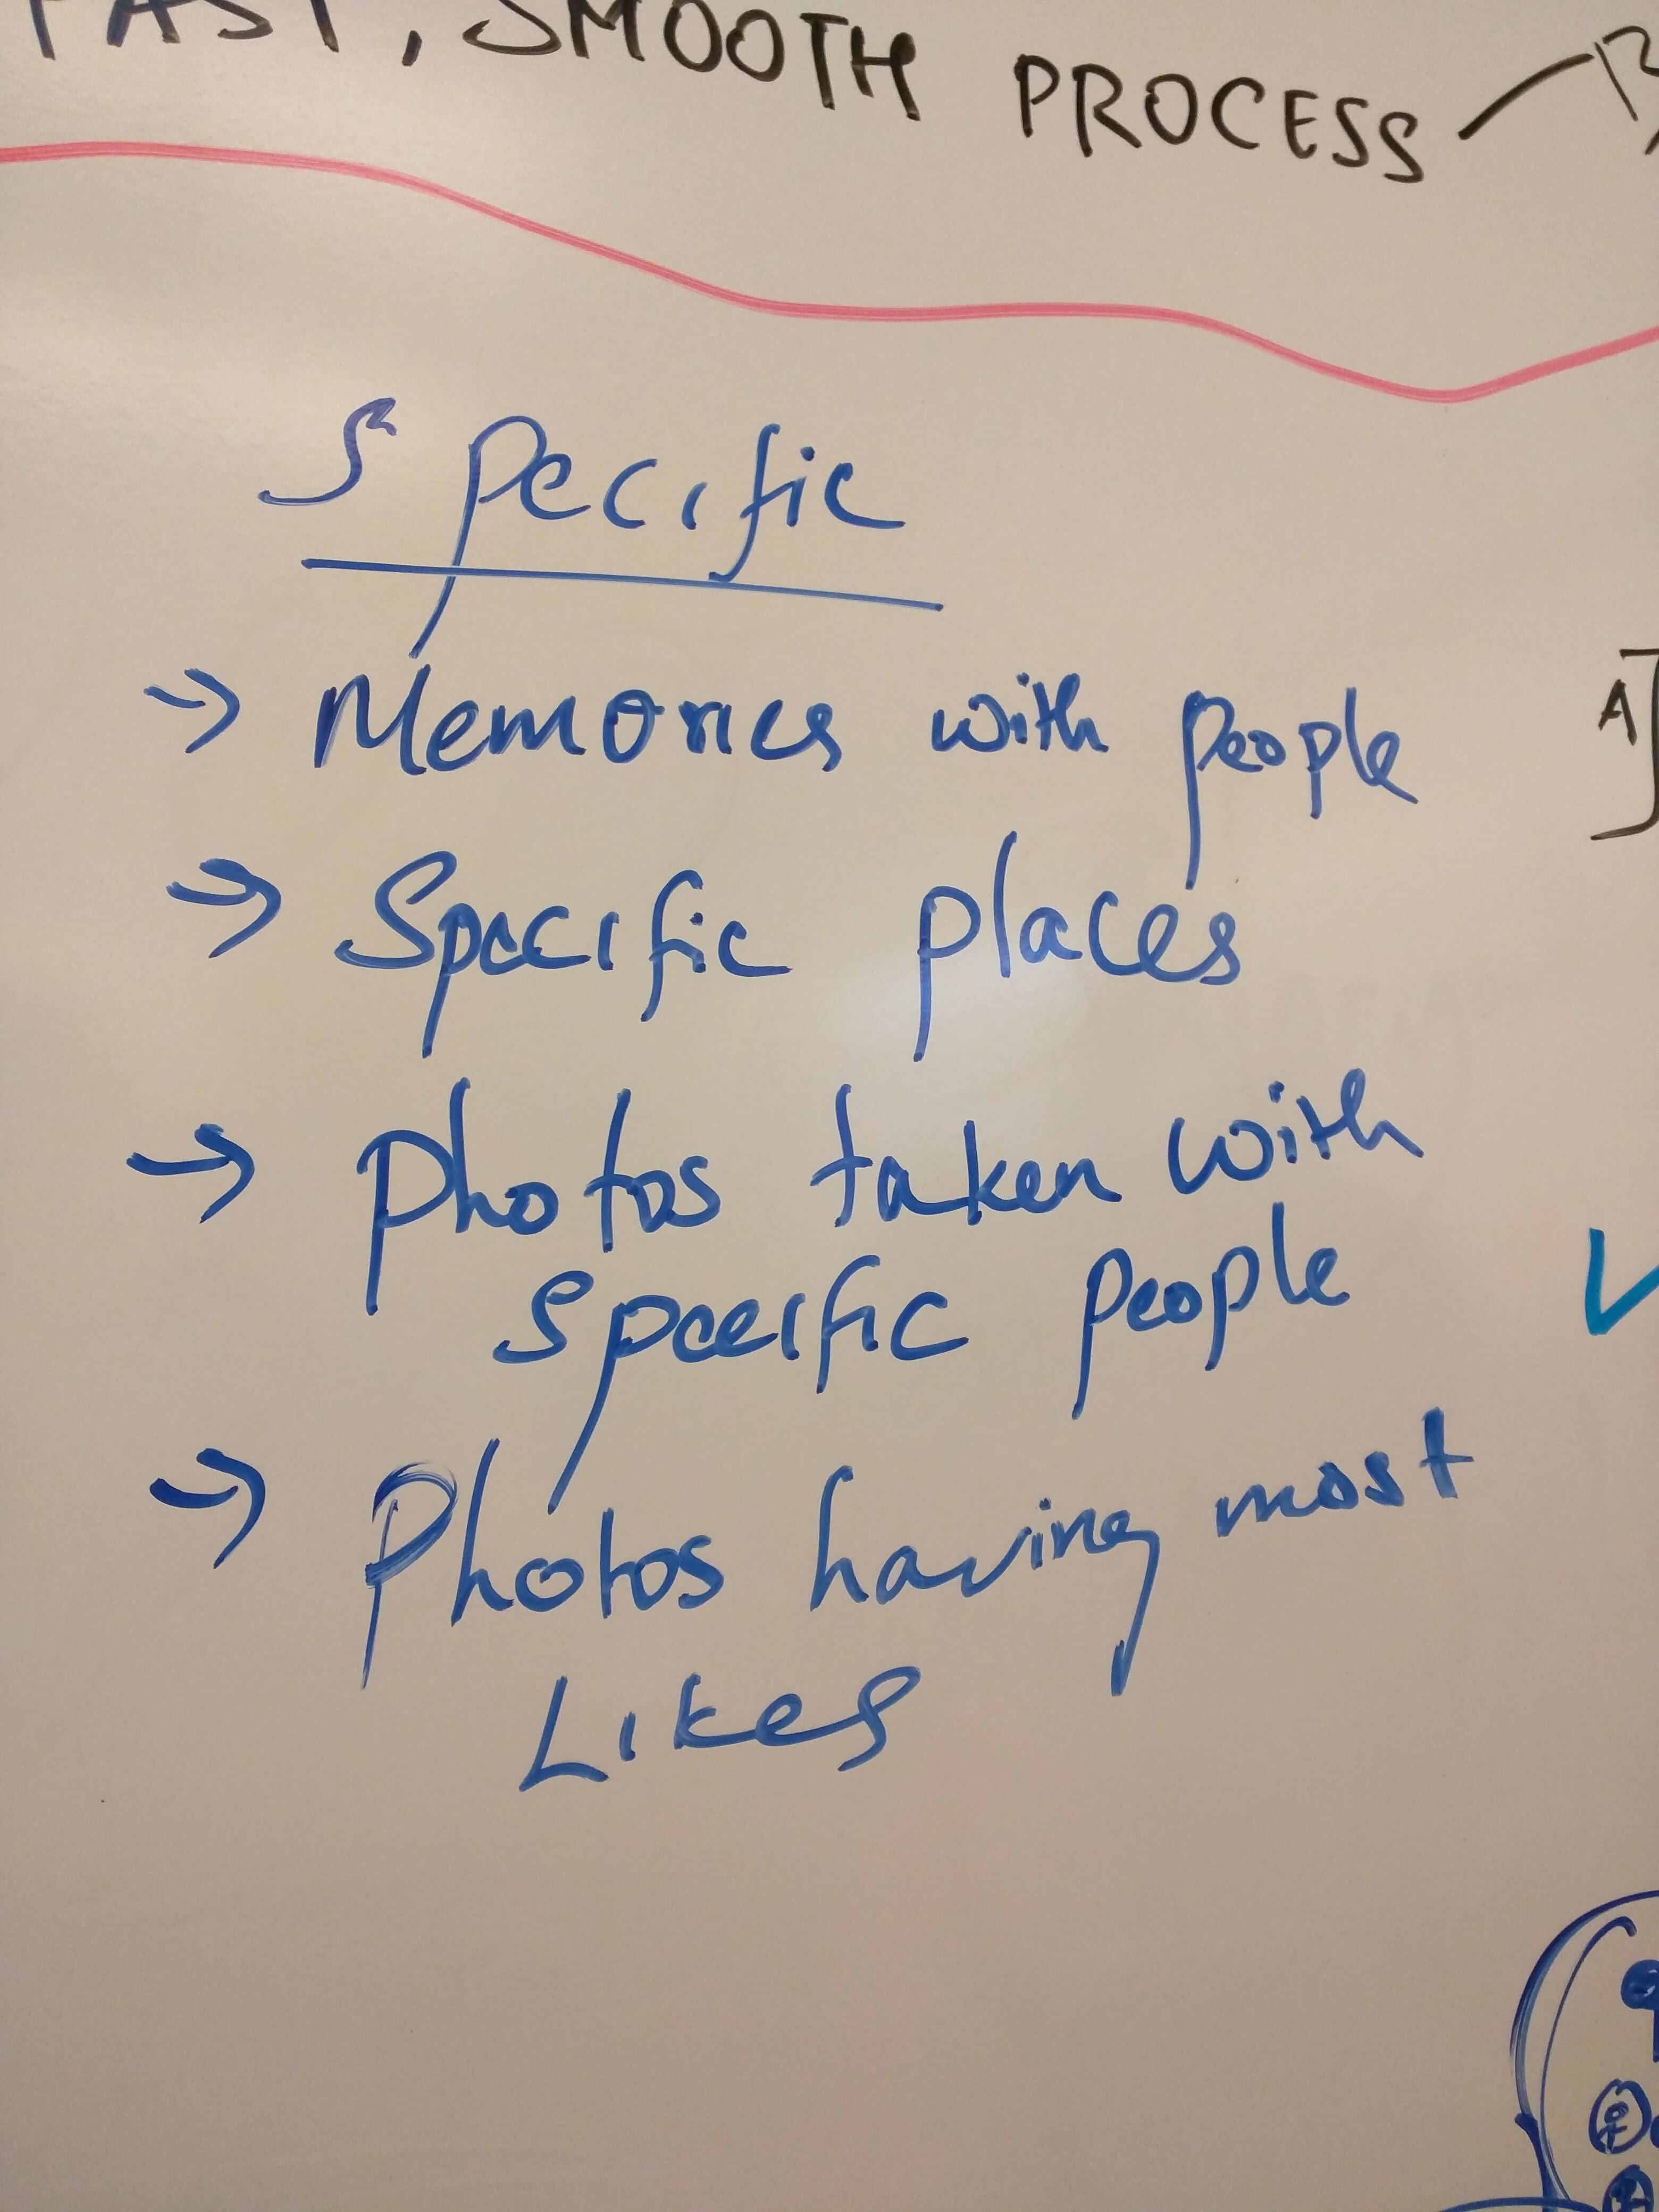 FAST, SMOOTH PROCESS
Specific
→ Memories with people
→ Specific places
→ Photos taken with
specific people
→ Photos having most
Likes
A